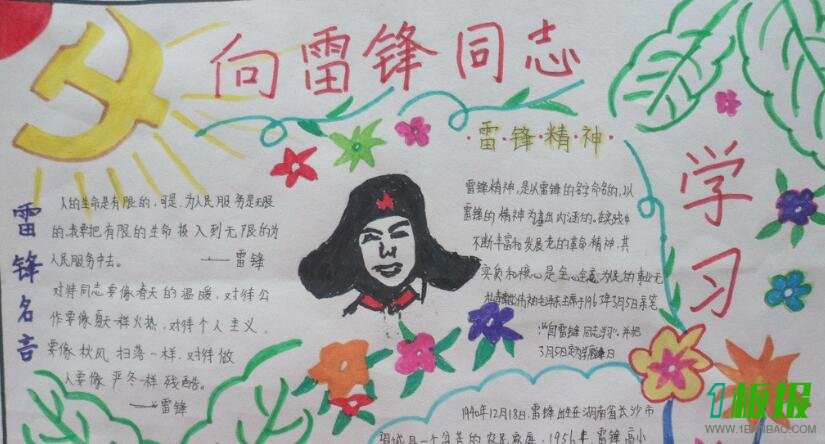 向雷锋同志
学习
雷锋名言
人的生命是有限的,可是,为人民服务是无限
的,我要把有限的生命投入到无限的为
人民服务中去。
——雷锋
对待同志要像春天的温暖,对待公
作要像夏天一样火热,对待个人主义
要像秋风扫落一样,对待敌
人要像严冬一样残酷。
——雷锋
雷·锋·精·神
雷锋精神,是从雷锋的名字命名的,以
雷锋的精神为基出内涵的。在实践中
不断丰富和发展老的革命精神,其
实质和核心是全心全意为人民的事业无
毛泽东于1963年3月5日亲笔
:“向雷锋同志学习”,并把
3月5日定为学雷锋日
1940年12月18日,雷锋出生在湖南省长沙市
望城县一个贫苦的农民家庭,1956年,雷锋高小
1板报
WWW.1BANBAO.COM